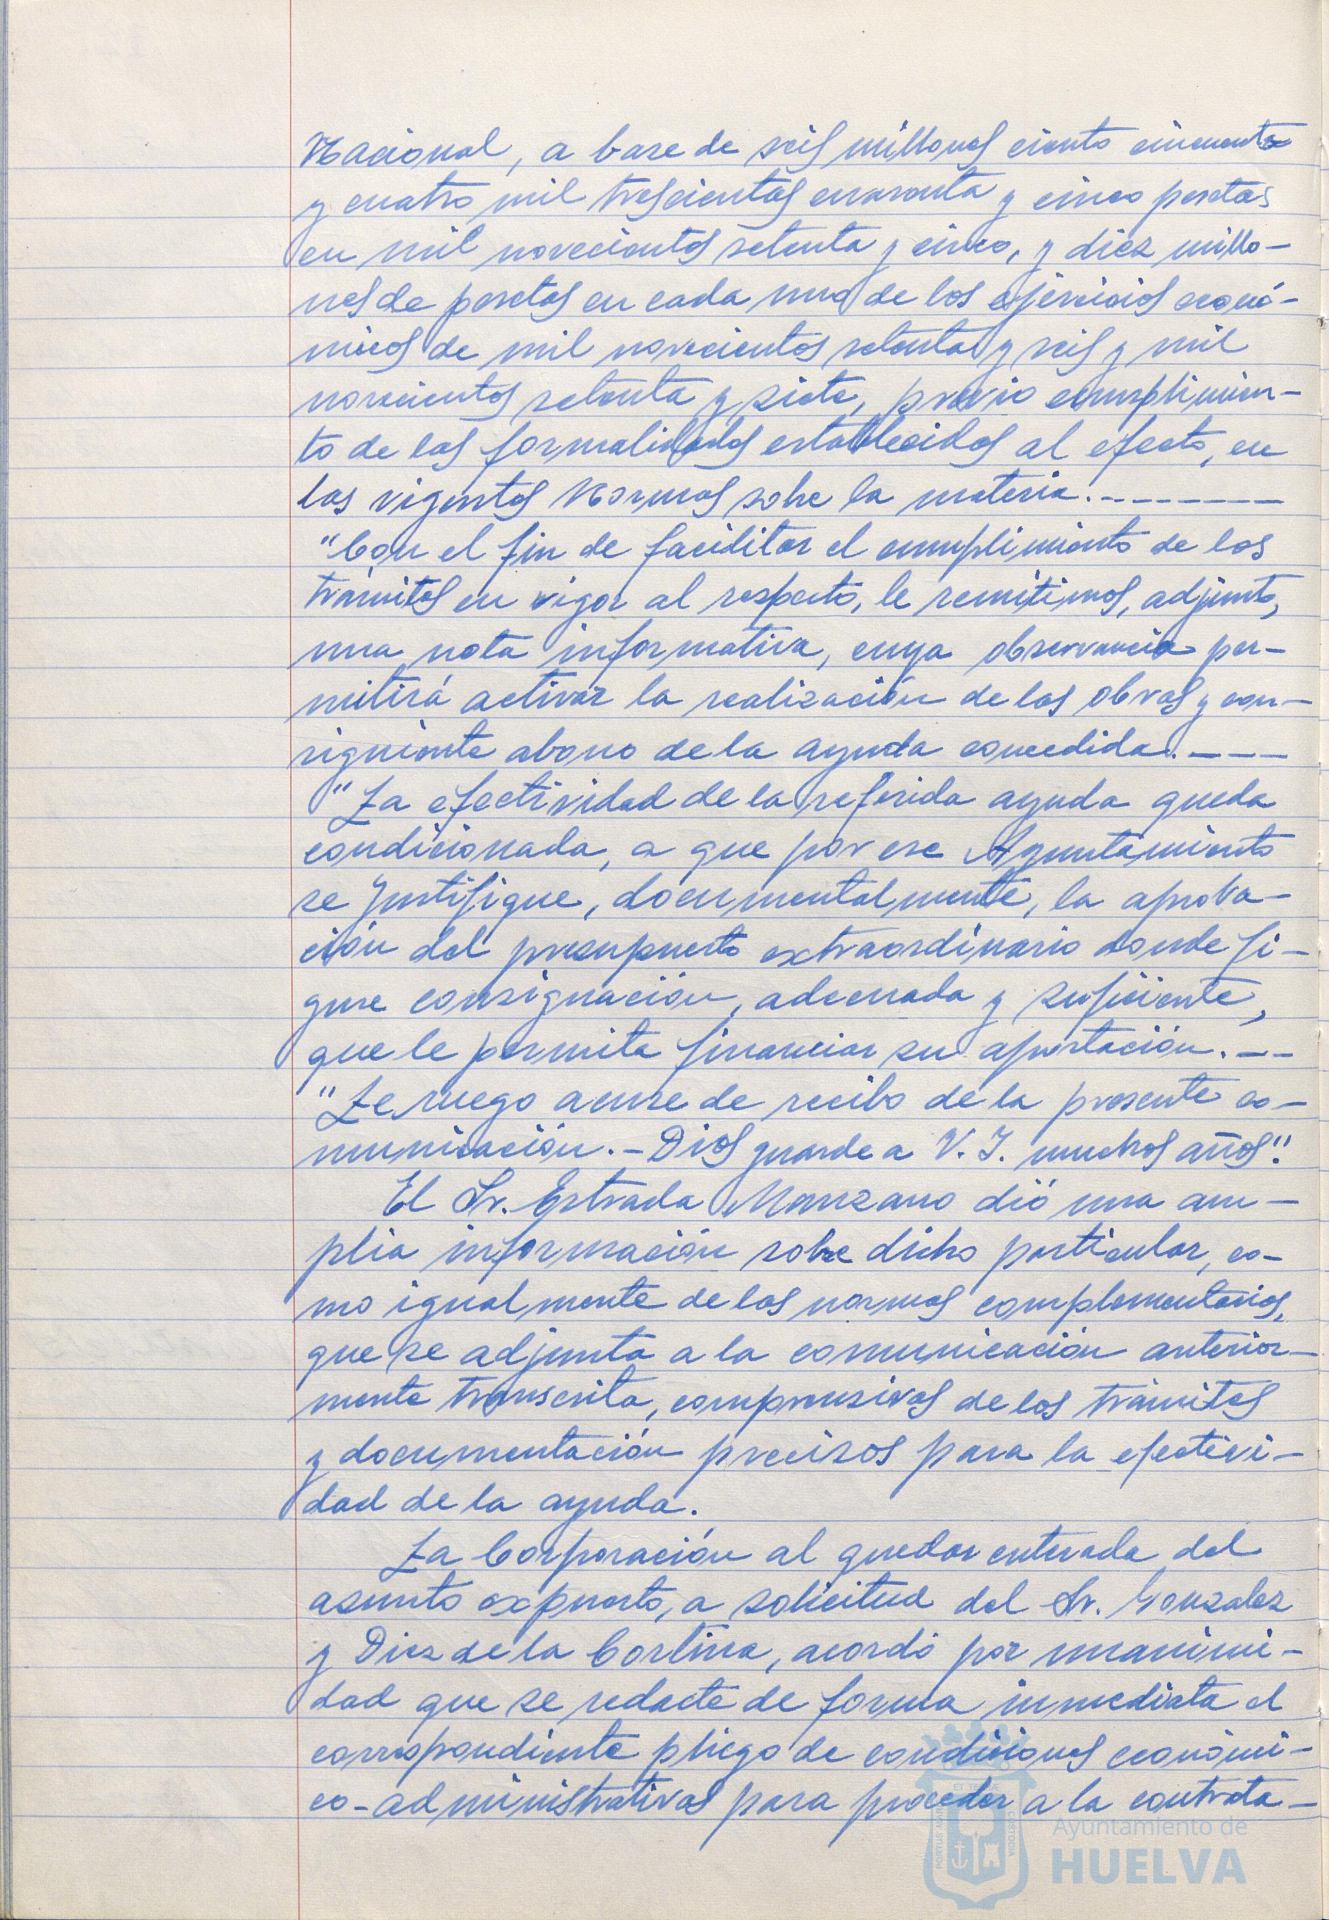 Nacional, a base de seis millones ciento cincuenta
y cuatro mil trescientas cuarenta y cinco pesetas
en mil novecientos setenta y cinco, y diez millo-
nes de pesetas en cada uno de los ejercicios econó-
micos de mil novecientos setenta y seis y mil
novecientos setenta y siete, previo cumplimien-
to de las formalidades establecidas al efecto, en
las vigentes Normas sobre la materia.--------
"Con el fin de facilitar el cumplimiento de los
trámites en vigor al respecto, le remitimos, adjunto,
una nota informativa, cuya observancia per-
mitirá activar la realización de las obras y con-
siguiente abono de la ayuda concedida.----
"La efectividad de la referida ayuda queda
condicionada, a que por ese Ayuntamiento
se justifique, documentalmente, la aproba-
ción del presupuesto extraordinario donde fi-
gure consignación, adecuada y suficiente,
que le permita financiar su aportación.--
"Le ruego acuse de recibo de la presente co-
municación.-Dios guarde a V.I. muchos años".
El Sr. Estrada Manzano dió una am-
plia información sobre dicho particular, co-
mo igualmente de las normas complementarias,
que se adjunta a la comunicación anterior-
mente transcrita, comprensivas de los trámites
y documentación precisos para la efectivi-
dad de la ayuda.
La Corporación al quedar enterada del
asunto expuesto, a solicitud del Sr. Gonzalez
y Diez de la Cortina, acordó por unanimi-
dad que se redacte de forma inmediata el
correspondiente pliego de condiciones económi-
co-administrativas para proceder a la contrata-
Ayuntamiento de
HUELVA